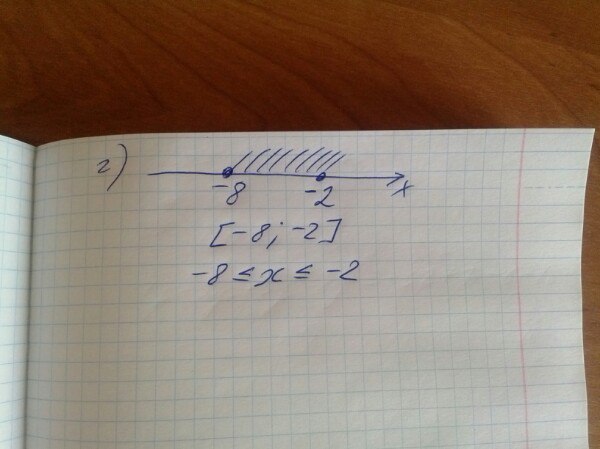 г)
-8 -2 x
[-8; -2]
-8 ≤ x ≤ -2